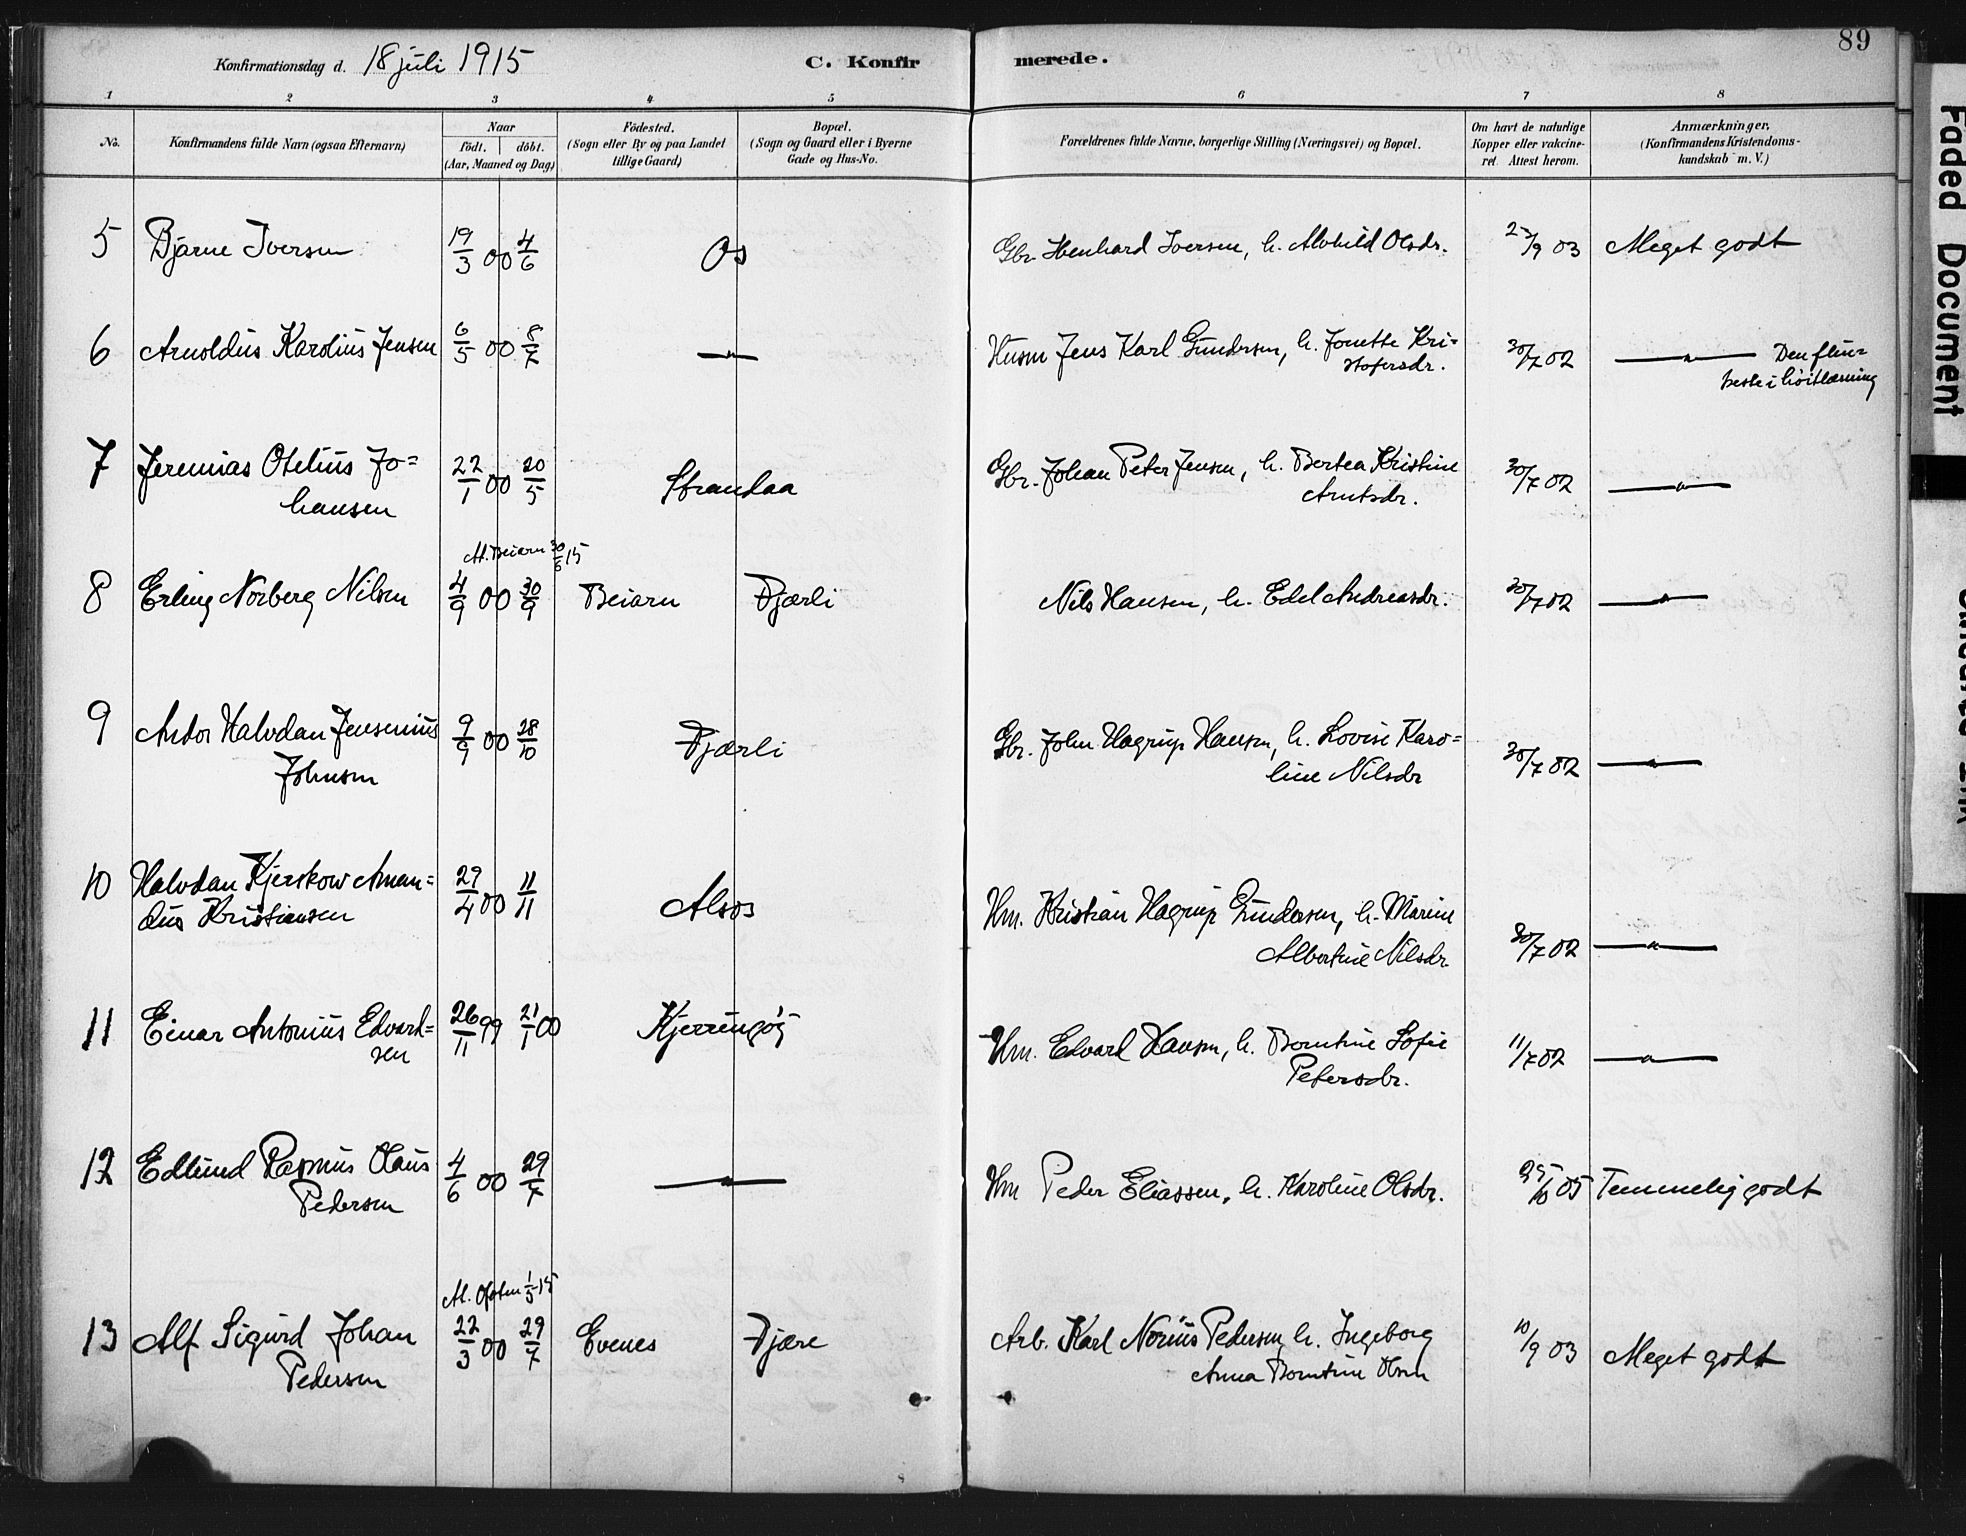 89
Konfirmationsdag d. 18 juli 1915 C. Konfir merede.
1 2 3 4 5 6 7 8
No. Konfirmandens fulde Navn (ogsaa Efternavn) Naar födt. döbt. (Aar, Maaned og Dag) Födested. (Sogn eller By og paa Landet tillige Gaard) Bopæl. (Sogn og Gaard eller i Byerne Gade og Hus-No. Forældrenes fulde Navne, borgerlige Stilling (Næringsvei) og Bopæl. Om havt de naturlige Kopper eller vakcineret. Attest herom. Anmærkninger. (Konfirmandens Kristendomskundskab m. V.)
5 Bjarne Iversen 19/3 00 4/6 Os Gbr. Iversen, h. Alvhild Olsdr. /9 03 Meget godt
6 Arnoldus Karolius Jensen 6/5 00 8/7 —"— Husm Jens Karl Gundersen, h. Jonette Kri=
stofersdr. 30/7 02 —"— Den flin-
keste i høitlæsning
7 Jeremias Otelius Jo=
hansen 22/1 00 20/5 Strandaa Gbr. Johan Peter Jensen, h. Bertea Kristine
Arntsdr. 30/7 02 —"—
At. Beiarn 30/6 15
8 Erling Norberg Nilsen 4/9 00 30/9 Beiarn Fjærli Nils Hansen, h. Edel Andreasdr. 30/7 02 —"—
9 Ardor Halvdan Jensenius
Johnsen 9/9 00 28/10 Fjærli Gbr. John Hagrup Hansen, h. Lovise Karo=
line Nilsdr 30/7 02 —"—
10 Halvdan Kjerskow Aman=
dus Kristiansen 29/4 00 11/11 Alsos Hm. Kristian Hagrup Gundersen, h. Marine
Albertine Nilsdr. 30/7 02 —"—
11 Einar Antonius Edvard=
sen 26/11 99 21/1 00 Kjerringøy Hm. Edvard Hansen, h. Berntine Sofie
Petersdr. 11/7 02 —"—
12 Edlund Rasmus Olaus
Pedersen 4/6 00 29/7 —"— Hm Peder Eliassen, h. Karoline Olsdr. 25/10 05 Temmelig godt
At. Ofoten 1/5 15
13 Alf Sigurd Johan
Pedersen 22/3 00 29/7 Evenes Fjære Arb. Karl Norius Pedersen h. Ingeborg
Anna Berntine Olsen 10/9 03 Meget godt
Faded Document